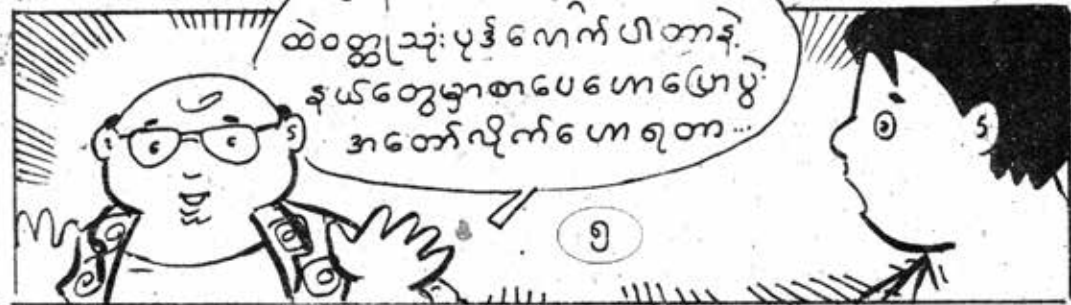 ထဲဝတ္ထုသုံးပုဒ်လောက်ပါတာနဲ့
နယ်တွေမှာစာပေဟောပြောပွဲ
အတော်လိုက်ဟောရတာ...
၅